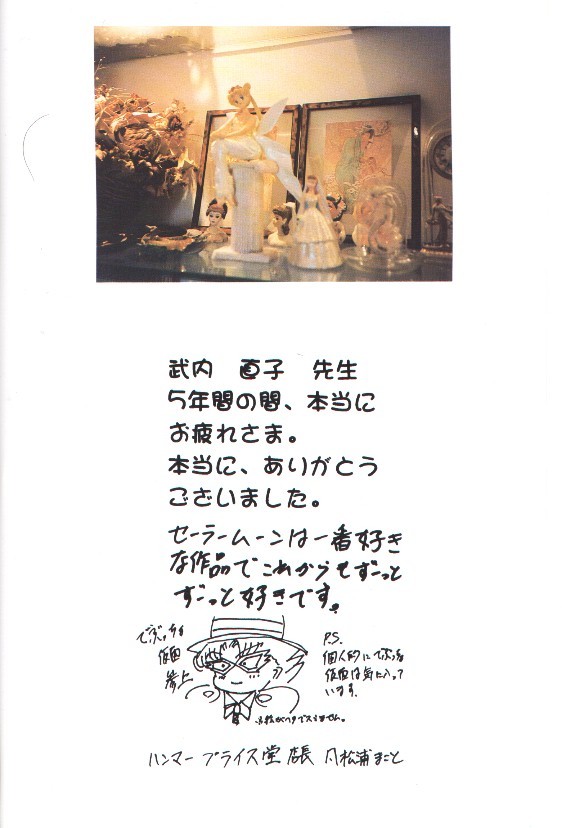 武内　直子　先生
5年間の間、本当に
お疲れさま。
本当に、ありがとう
ございました。
セーラームーンは一番好き
な作品でこれからもずーっと
ずーっと好きです。
仮面
参上
P.S.
個人的に
仮面は気に入って
います。
ハンマープライス堂 店長 松浦まこと